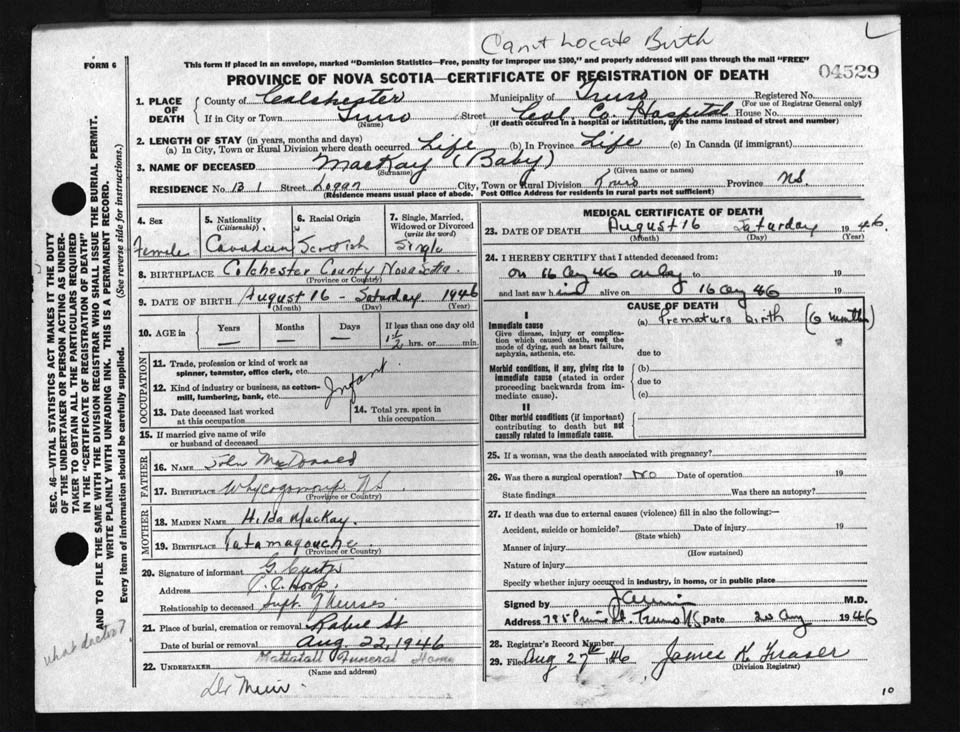 Can't Locate Birth
L
FORM 6
This form if placed in an envelope, marked "Dominion Statistics—Free, penalty for improper use $300," and properly addressed will pass through the mail "FREE"
PROVINCE OF NOVA SCOTIA—CERTIFICATE OF REGISTRATION OF DEATH
04529
1. PLACE OF DEATH
County of Colchester Municipality of Truro Registered No.
(For use of Registrar General only)
If in City or Town Truro Street Col. Co. Hospital House No.
(Name) (If death occurred in a hospital or institution, give the name instead of street and number)
2. LENGTH OF STAY (in years, months and days)
(a) In City, Town or Rural Division where death occurred Life (b) In Province Life (c) In Canada (if immigrant)
3. NAME OF DECEASED MacKay (Baby)
(Surname) (Given name or names)
RESIDENCE No 131 Street Logan City, Town or Rural Division Truro Province NS.
(Residence means usual place of abode. Post Office Address for residents in rural parts not sufficient)
4. Sex Female
5. Nationality (Citizenship) Canadian
6. Racial Origin Scottish
7. Single, Married, Widowed or Divorced (write the word) Single
8. BIRTHPLACE Colchester County Nova Scotia.
(Province or Country)
9. DATE OF BIRTH August 16 - Saturday 1946
(Month) (Day) (Year)
10. AGE in Years Months Days If less than one day old
— — — 1 1/2 hrs. or min.
OCCUPATION
11. Trade, profession or kind of work as spinner, teamster, office clerk, etc.
12. Kind of industry or business, as cotton-mill, lumbering, bank, etc.
Infant
13. Date deceased last worked at this occupation
14. Total yrs. spent in this occupation
15. If married give name of wife or husband of deceased
FATHER
16. Name John McDonald
17. BIRTHPLACE N.S.
(Province or Country)
MOTHER
18. MAIDEN NAME Hilda MacKay.
19. BIRTHPLACE Tatamagouche
(Province or Country)
20. Signature of informant G.
Address C. C. Hosp.
Relationship to deceased Supt. Nurses
21. Place of burial, cremation or removal Robie St
Date of burial or removal Aug. 22, 1946
22. UNDERTAKER Mattatall Funeral Home
(Name and address)
Dr Muir
MEDICAL CERTIFICATE OF DEATH
23. DATE OF DEATH August 16 Saturday 1946
(Month) (Day) (Year)
24. I HEREBY CERTIFY that I attended deceased from:
on 16 Aug 46 only to 19
and last saw h alive on 16 Aug 46 19
CAUSE OF DEATH
I
Immediate cause (a) Premature birth (6 months)
Give disease, injury or complication which caused death, not the mode of dying, such as heart failure, asphyxia, asthenia, etc.
due to
Morbid conditions, if any, giving rise to immediate cause (stated in order proceeding backwards from immediate cause).
(b)
due to
(c)
II
Other morbid conditions (if important) contributing to death but not causally related to immediate cause.
25. If a woman, was the death associated with pregnancy?
26. Was there a surgical operation? No Date of operation 19
State findings Was there an autopsy?
27. If death was due to external causes (violence) fill in also the following:—
Accident, suicide or homicide? Date of injury 19
(State which)
Manner of injury
(How sustained)
Nature of injury
Specify whether injury occurred in industry, in home, or in public place
Signed by M.D.
Address Prince St. Truro NS Date 20 Aug 1946
28. Registrar's Record Number
29. Filed Aug 27th 1946 James K. Fraser
(Division Registrar)
10
SEC. 46—VITAL STATISTICS ACT MAKES IT THE DUTY
OF THE UNDERTAKER OR PERSON ACTING AS UNDER-
TAKER TO OBTAIN ALL THE PARTICULARS REQUIRED
IN THE "CERTIFICATE OF REGISTRATION OF DEATH"
AND TO FILE THE SAME WITH THE DIVISION REGISTRAR WHO SHALL ISSUE THE BURIAL PERMIT.
WRITE PLAINLY WITH UNFADING INK. THIS IS A PERMANENT RECORD.
Every item of information should be carefully supplied. (See reverse side for instructions.)
What doctor?